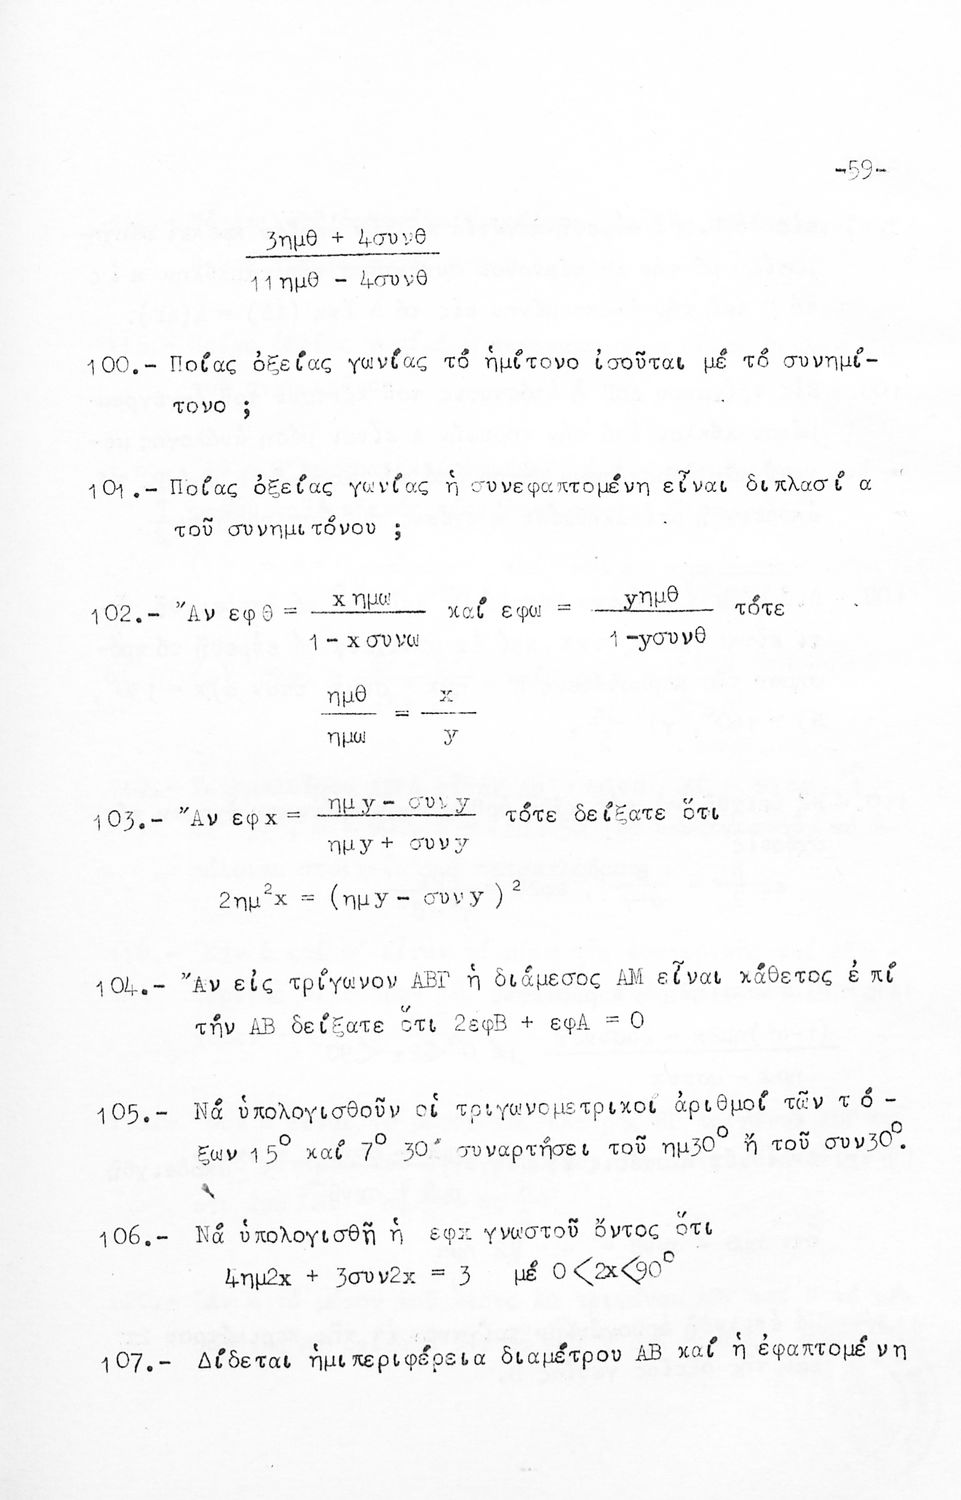 -59-
3ημθ + 4συνθ
11ημθ - 4συνθ
100.- Ποίας ὀξείας γωνίας τό ἡμίτονο ἰσοῦται μέ τό συνημί-
τονο ;
101.- Ποίας ὀξείας γωνίας ἡ συνεφαπτομένη εἶναι διπλασία
τοῦ συνημιτόνου ;
102.- Ἄν εφθ = xημω / 1 - xσυνω καί εφω = yημθ / 1 -yσυνθ τότε
ημθ / ημω = x / y
103.- Ἄν εφx = ημy - συνy / ημy + συνy τότε δείξατε ὅτι
2ημ²x = (ημy - συνy )²
104.- Ἄν εἰς τρίγωνον ΑΒΓ ἡ διάμεσος ΑΜ εἶναι κάθετος ἐπί
τήν ΑΒ δείξατε ὅτι 2εφΒ + εφΑ = 0
105.- Νά ὑπολογισθοῦν οἱ τριγωνομετρικοί ἀριθμοί τῶν τό-
ξων 15° καί 7° 30´ συναρτήσει τοῦ ημ30° ἤ τοῦ συν30°.
106.- Νά ὑπολογισθῇ ἡ εφx γνωστοῦ ὄντος ὅτι
4ημ2x + 3συν2x = 3 μέ 0<2x<90°
107.- Δίδεται ἡμιπεριφέρεια διαμέτρου ΑΒ καί ἡ ἐφαπτομένη